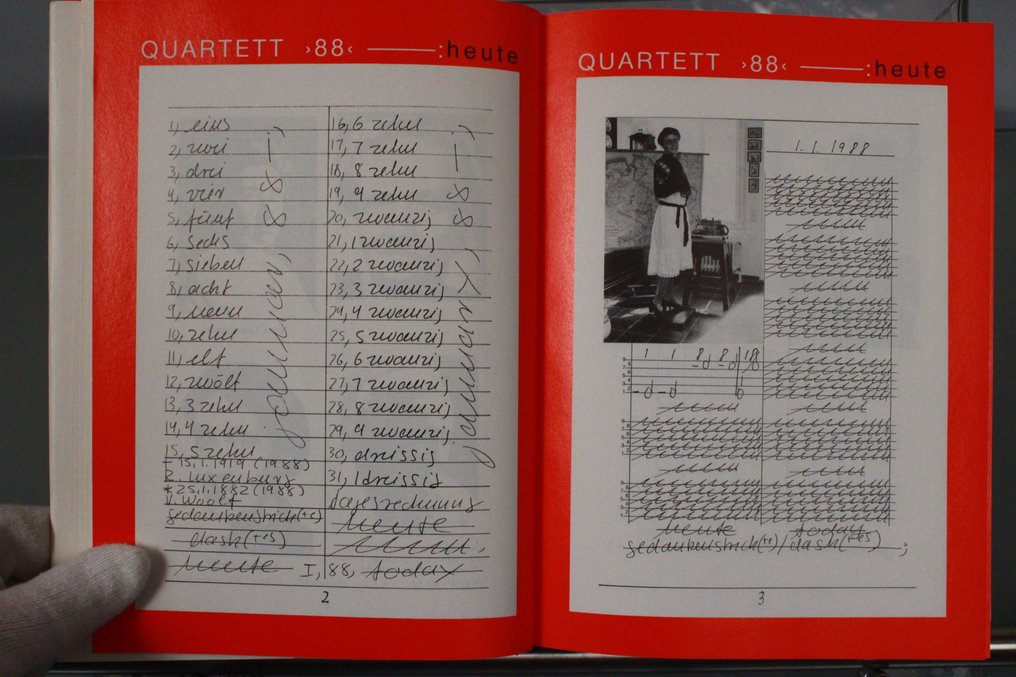 QUARTETT ›88‹ ———:heute
1, eins
2, zwei
3, drei
4, vier
5, fünf
6, sechs
7, sieben
8, acht
9, neun
10, zehn
11, elf
12, zwölf
13, 3 zehn
14, 4 zehn
15, 5 zehn
januar, 88—;
– 15.1.1919 (1988)
R. Luxemburg
* 25.1.1882 (1988)
V. Woolf
gedankenstrich(+e)
dash(+es)
heute
16, 6 zehn
17, 7 zehn
18, 8 zehn
19, 9 zehn
20, zwanzig
21, 1 zwanzig
22, 2 zwanzig
23, 3 zwanzig
24, 4 zwanzig
25, 5 zwanzig
26, 6 zwanzig
27, 7 zwanzig
28, 8 zwanzig
29, 9 zwanzig
30, dreissig
31, 1 dreissig
january, 88—;
tagesrechnung
heute
I, 88, today
2
QUARTETT ›88‹ ———:heute
1. 1. 1988
1 1 8 8 18
heute today
gedankenstrich(+e)/dash(+es) ;
3